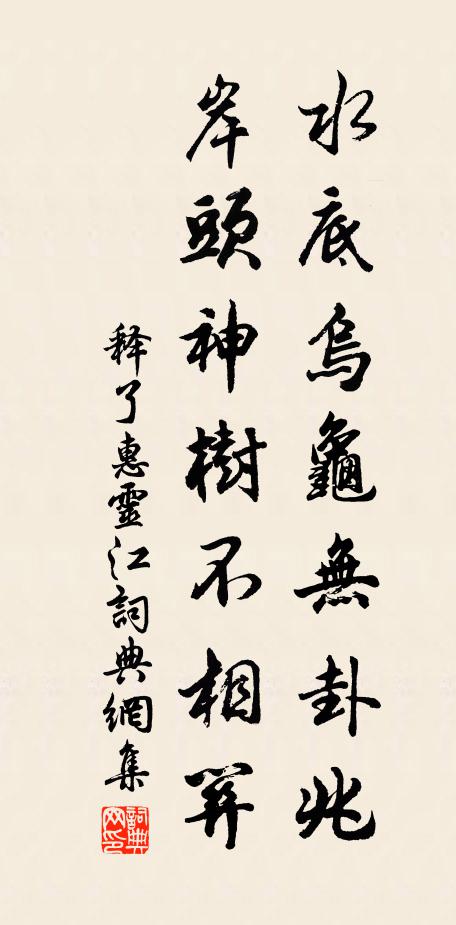 水底烏龜無卦兆
岸頭神樹不相關
释了惠靈江詞典網集
詞典网印